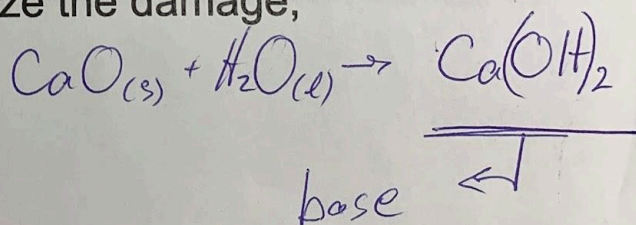 ze the damage,
CaO(s) + H₂O(l) → Ca(OH)₂
base